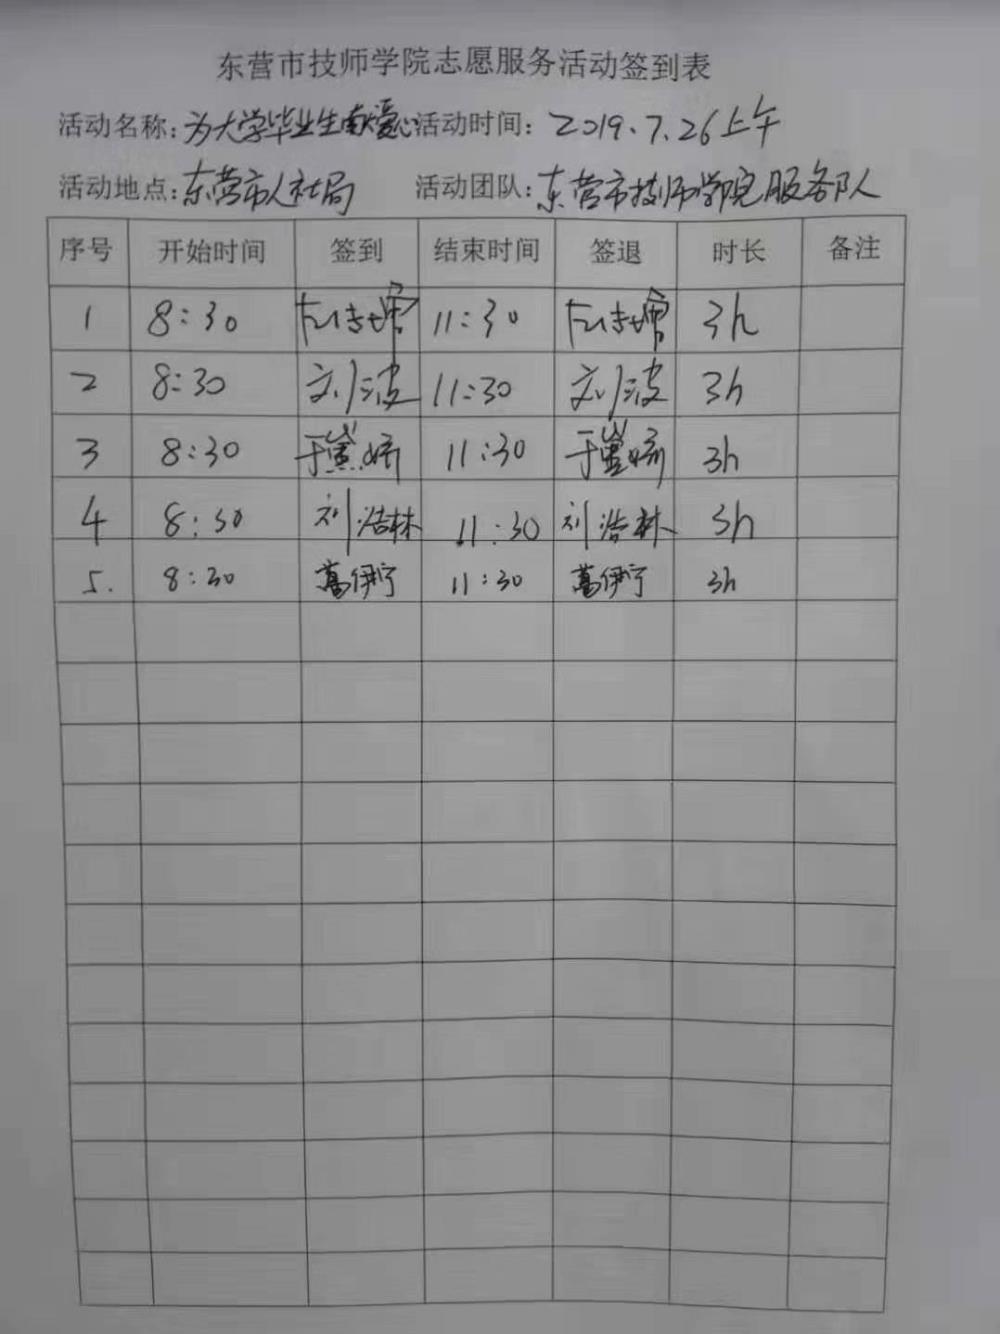 东营市技师学院志愿服务活动签到表
活动名称:为大学毕业生献爱心 活动时间:2019.7.26上午
活动地点:东营市人社局 活动团队:东营市技师学院服务队
序号 开始时间 签到 结束时间 签退 时长 备注
1 8:30 11:30 3h
2 8:30 刘波 11:30 刘波 3h
3 8:30 11:30 3h
4 8:30 刘浩林 11:30 刘浩林 3h
5. 8:30 葛伊宁 11:30 葛伊宁 3h